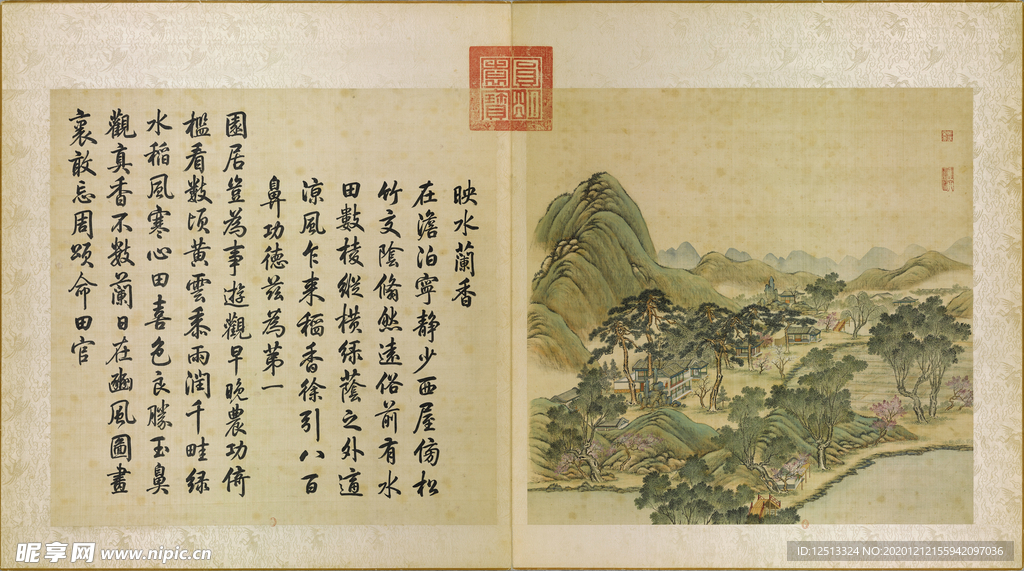 映水蘭香
在澹泊寧靜少西屋傍松
竹交陰翛然遠俗前有水
田數棱縱橫綠蔭之外適
涼風乍來稻香徐引八百
鼻功德茲為第一
園居豈為事遊觀早晚農功倚
檻看數頃黃雲黍雨潤千畦綠
水稻風寒心田喜色良勝玉鼻
觀真香不數蘭日在豳風圖畫
裏敢忘周頌命田官
圓明園寶
昵享网 www.nipic.cn
ID:12513324 NO:20201212155942097036